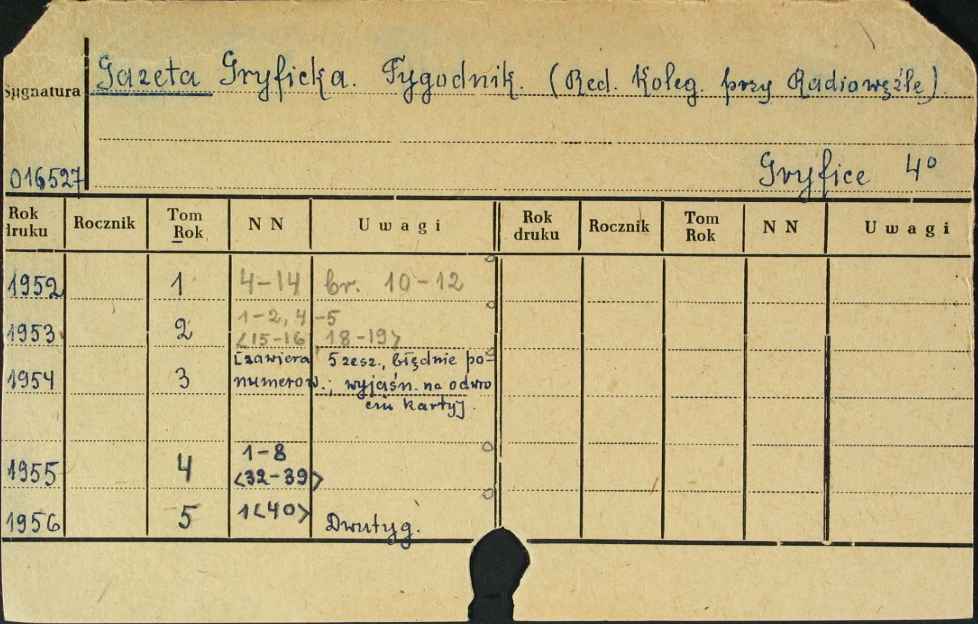 Sygnatura
Gazeta Gryficka. Tygodnik. (Red. Koleg. przy Radiowęźle)
016527
Gryfice 4°
Rok druku Rocznik Tom Rok NN Uwagi Rok druku Rocznik Tom Rok NN Uwagi
1952 1 4-14 br. 10-12
1953 2 1-2, 4-5
<15-16, 18-19>
1954 3 [zawiera 5 zesz., błędnie po-
numerow.; wyjaśn. na odwro
ciu karty].
1955 4 1-8
<32-39>
1956 5 1<40> Dwutyg.